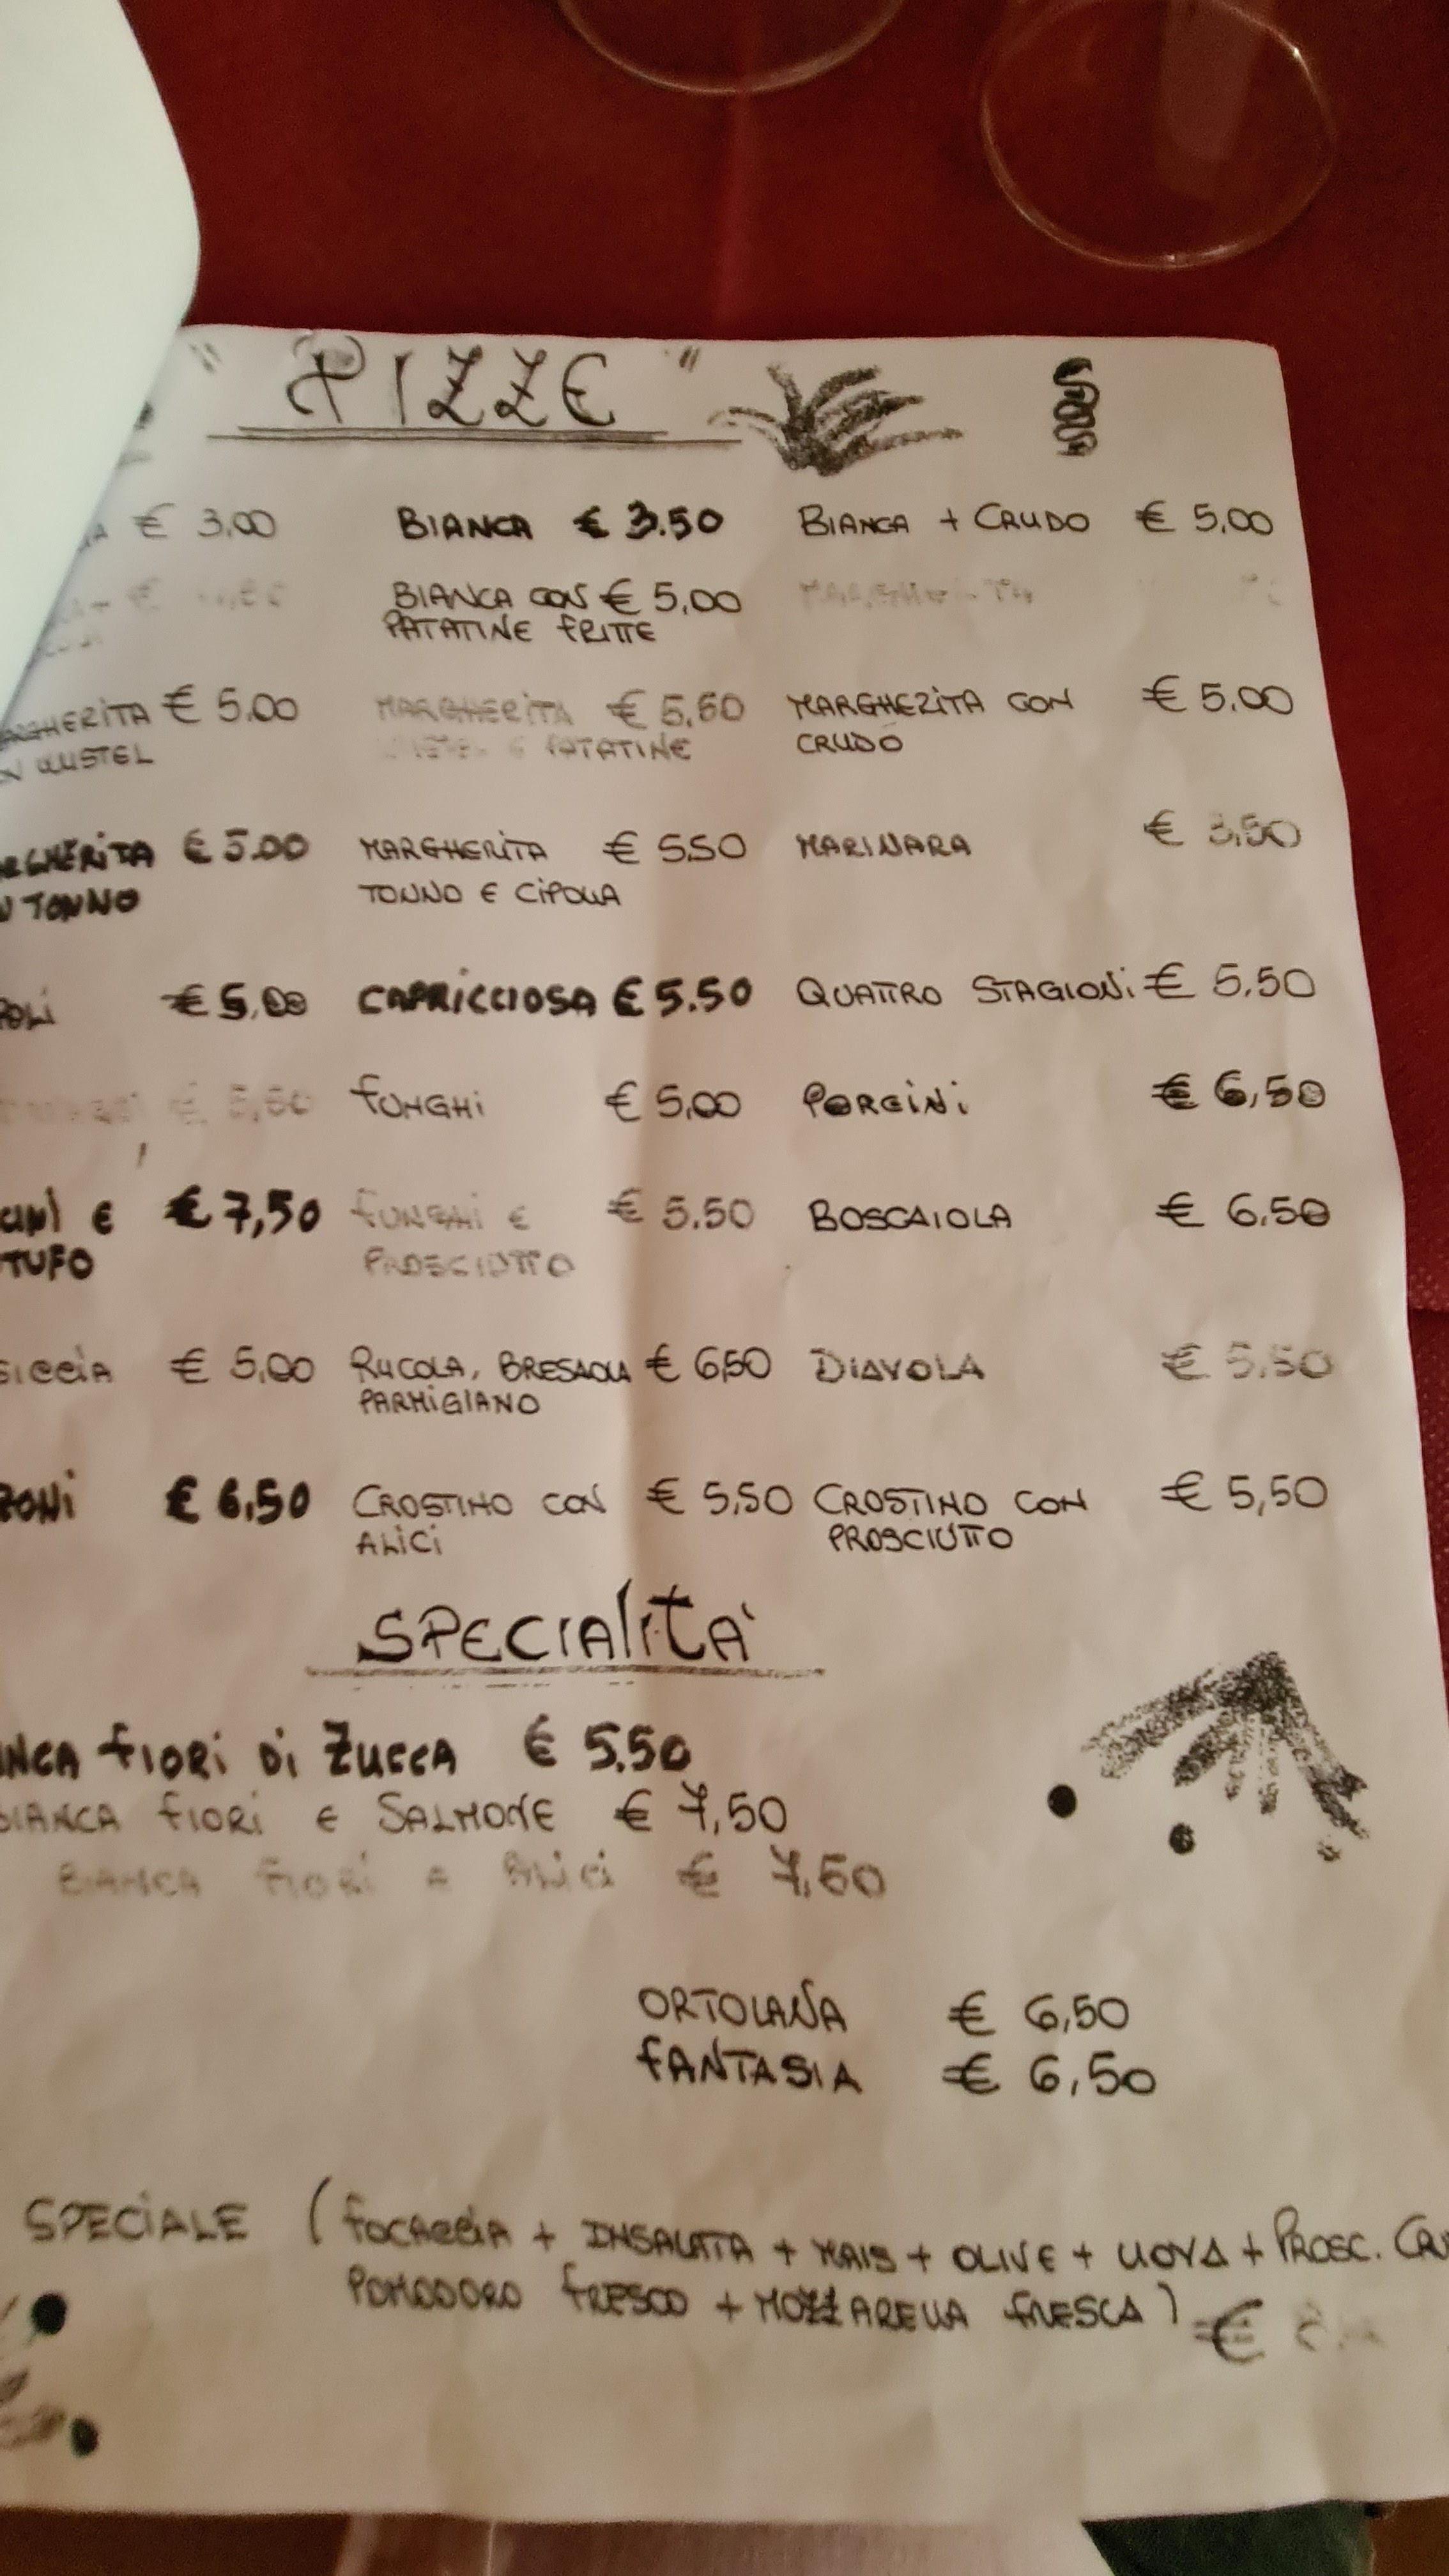 " PIZZE "
€ 3,00 BIANCA € 3.50 BIANCA + CRUDO € 5,00
€ BIANCA CON € 5,00 MARGHERITA
PATATINE FRITTE
€ 5,00 MARGHERITA € 5,50 MARGHERITA CON € 5,00
WUSTEL E PATATINE CRUDO
WUSTEL
€ 5.00 MARGHERITA € 5,50 MARINARA € 3,50
TONNO TONNO E CIPOLLA
€ 5,00 CAPRICCIOSA € 5.50 QUATTRO STAGIONI € 5,50
€ 5,50 FUNGHI € 5,00 PORCINI € 6,50
E € 7,50 FUNGHI E € 5.50 BOSCAIOLA € 6.50
PROSCIUTTO
€ 5,00 RUCOLA, BRESAOLA € 6,50 DIAVOLA € 5.50
PARMIGIANO
€ 6,50 CROSTINO CON € 5,50 CROSTINO CON € 5,50
ALICI PROSCIUTTO
SPECIALITA'
FIORI DI ZUCCA € 5.50
BIANCA FIORI E SALMONE € 7,50
BIANCA FIORI ALICI € 7,50
ORTOLANA € 6,50
FANTASIA € 6,50
SPECIALE (FOCACCIA + INSALATA + MAIS + OLIVE + UOVA + PROSC.
POMODORO FRESCO + MOZZARELLA FRESCA) €